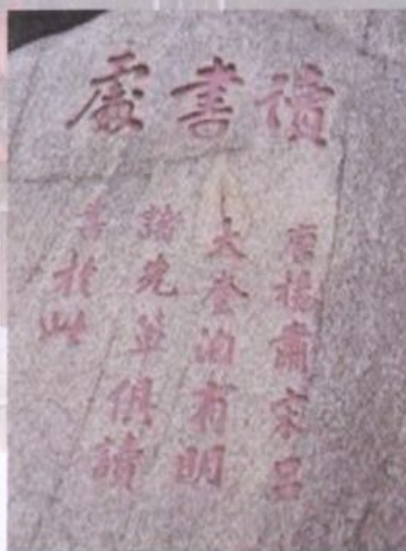 讀書處
唐楊肅宋呂
大奎洎有明
諸先輩俱讀
書於此